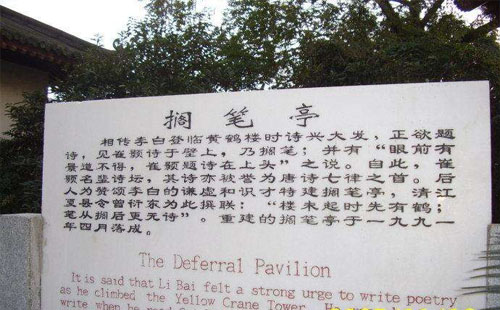 搁笔亭
相传李白登临黄鹤楼时诗兴大发，正欲题
诗，见崔颢诗于壁上，乃搁笔；并有“眼前有
景道不得，崔颢题诗在上头”之说。自此，崔
颢名蜚诗坛，其诗亦被誉为唐诗七律之首。后
人为赞颂李白的谦虚和识才特建搁笔亭，清江
夏县令曾衍东为此撰联：“楼未起时先有鹤；
笔从搁后更无诗”。重建的搁笔亭于一九九一
年四月落成。
The Deferral Pavilion
It is said that Li Bai felt a strong urge to write poetry
as he climbed the Yellow Crane Tower.
write when he read